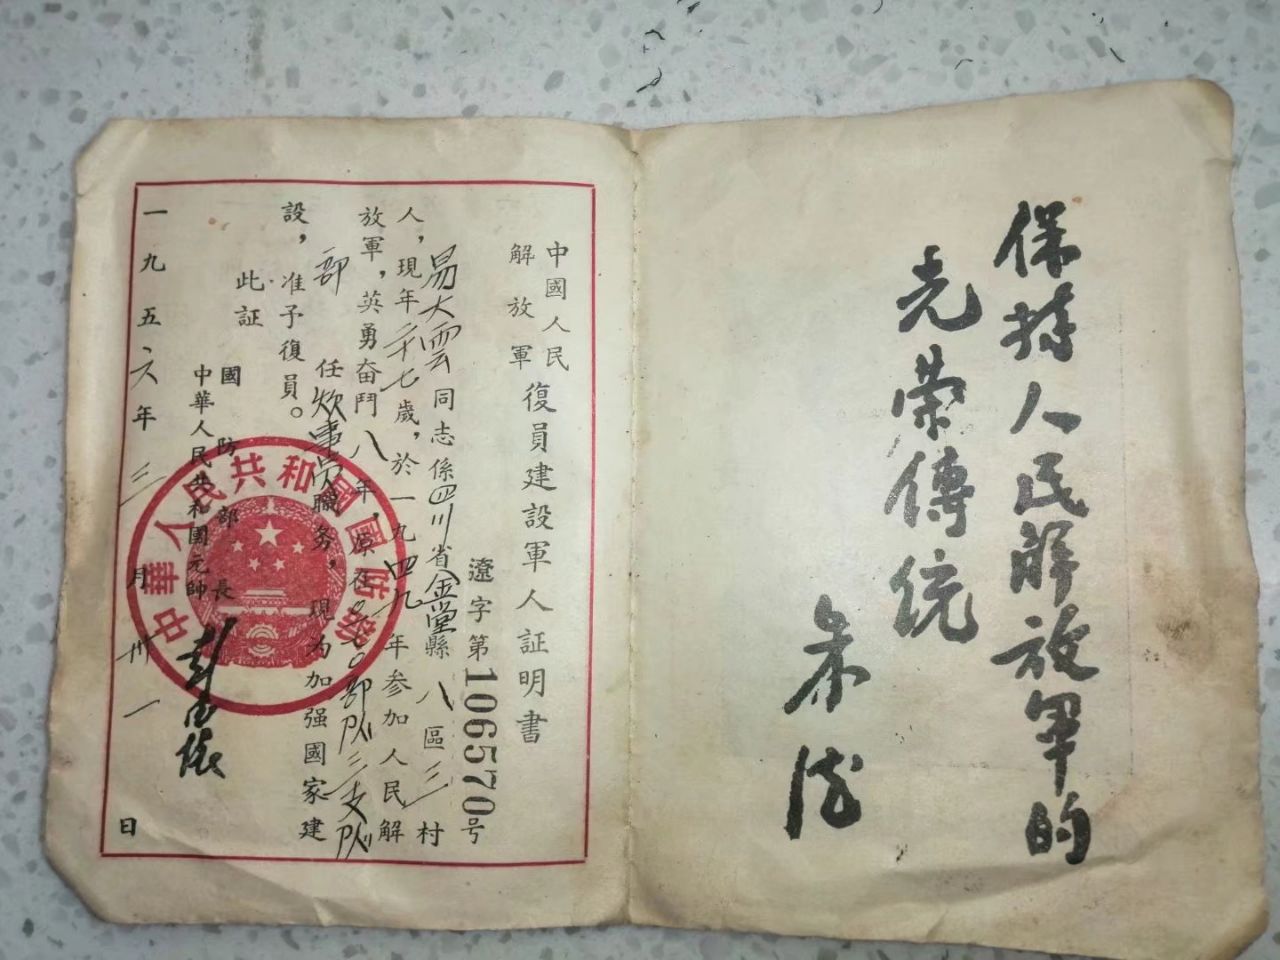 保持人民解放軍的
光荣傳统
朱德
中國人民
解放軍
復員建設軍人証明書
遼字第106570号
易大雲同志係四川省金堂縣八區三村
人，現年二十七歲，於一九四九年参加人民解
放軍，英勇奋鬥八年，原在〇部队三支队
部任炊事員職务，現为加强國家建
設，准予復員。
此証
國防部長
中華人民共和國元帥
彭德懷
一九五六年三月卅一日
中華人民共和國國防部